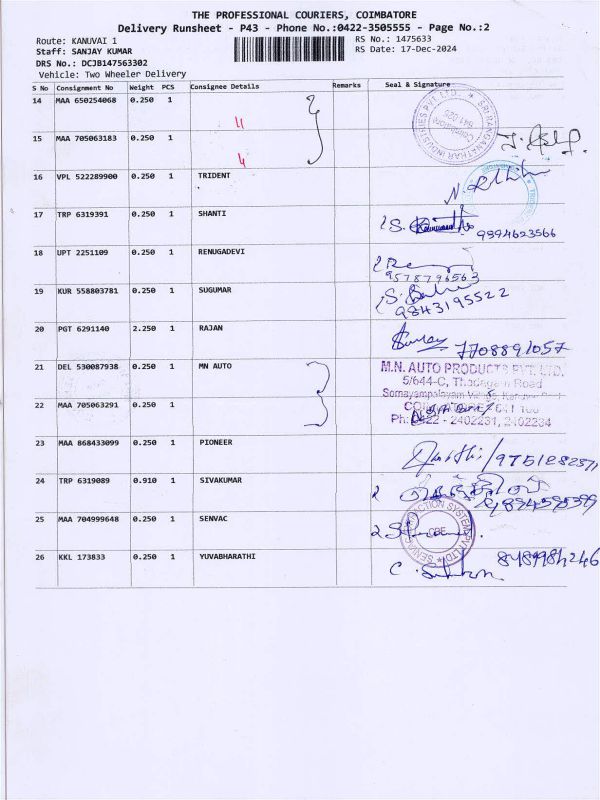 THE PROFESSIONAL COURIERS, COIMBATORE
Delivery Runsheet - P43 - Phone No.:0422-3505555 - Page No.:2
Route: KANUVAI 1
RS No.: 1475633
Staff: SANJAY KUMAR
RS Date: 17-Dec-2024
DRS No.: DCJB147563302
Vehicle: Two Wheeler Delivery
S No Consignment No Weight PCS Consignee Details Remarks Seal & Signature
14 MAA 650254068 0.250 1
15 MAA 705063183 0.250 1
16 VPL 522289900 0.250 1 TRIDENT
17 TRP 6319391 0.250 1 SHANTI
9394623566
18 UPT 2251109 0.250 1 RENUGADEVI
9578796563
19 KUR 558803781 0.250 1 SUGUMAR
9843195522
20 PGT 6291140 2.250 1 RAJAN
7708891057
21 DEL 530087938 0.250 1 MN AUTO
M.N. AUTO PRODUCTS PVT. LTD.
5/644-C, Thadagam Road
22 MAA 705063291 0.250 1
Ph: 0422 - 2402231, 2402234
23 MAA 868433099 0.250 1 PIONEER
24 TRP 6319089 0.910 1 SIVAKUMAR
25 MAA 704999648 0.250 1 SENVAC
CBE
26 KKL 173833 0.250 1 YUVABHARATHI